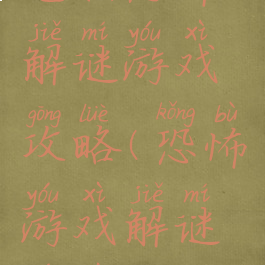 jiě mí yóu xì
解谜游戏
gōng lüè kǒng bù
攻略(恐怖
yóu xì jiě mí
游戏解谜